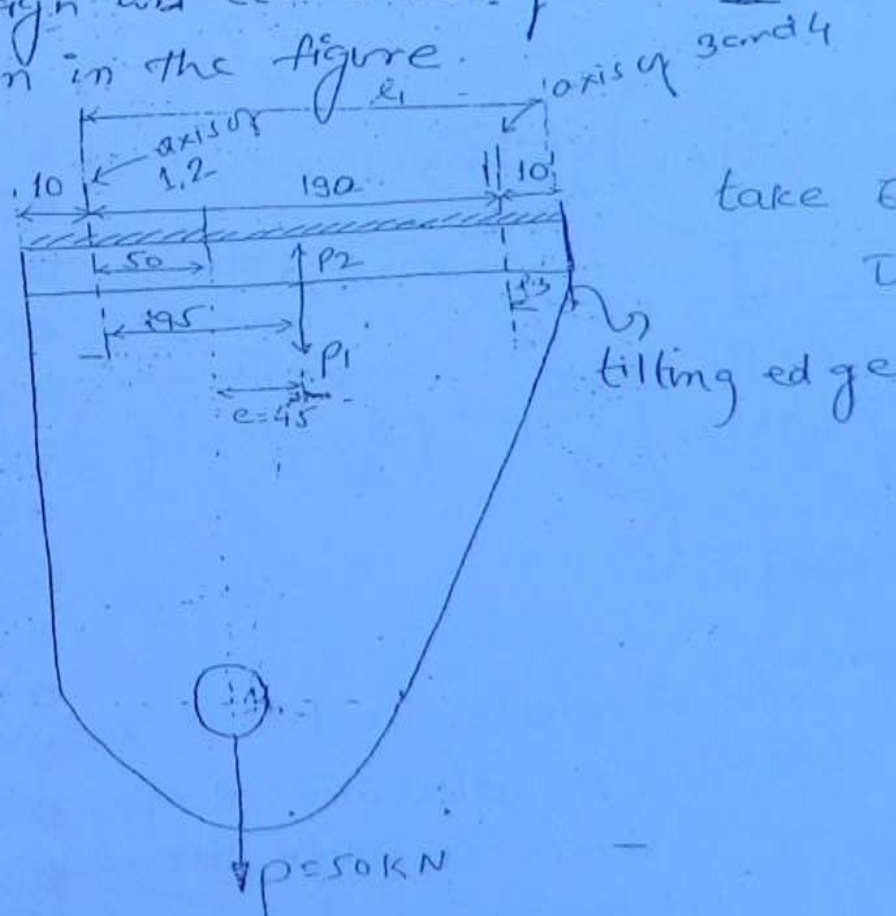 in the figure.
l1
axis of 3 and 4
axis of
1,2
10
190
10
take
50
P2
195
P1
tilting edge
e=45
P=50KN